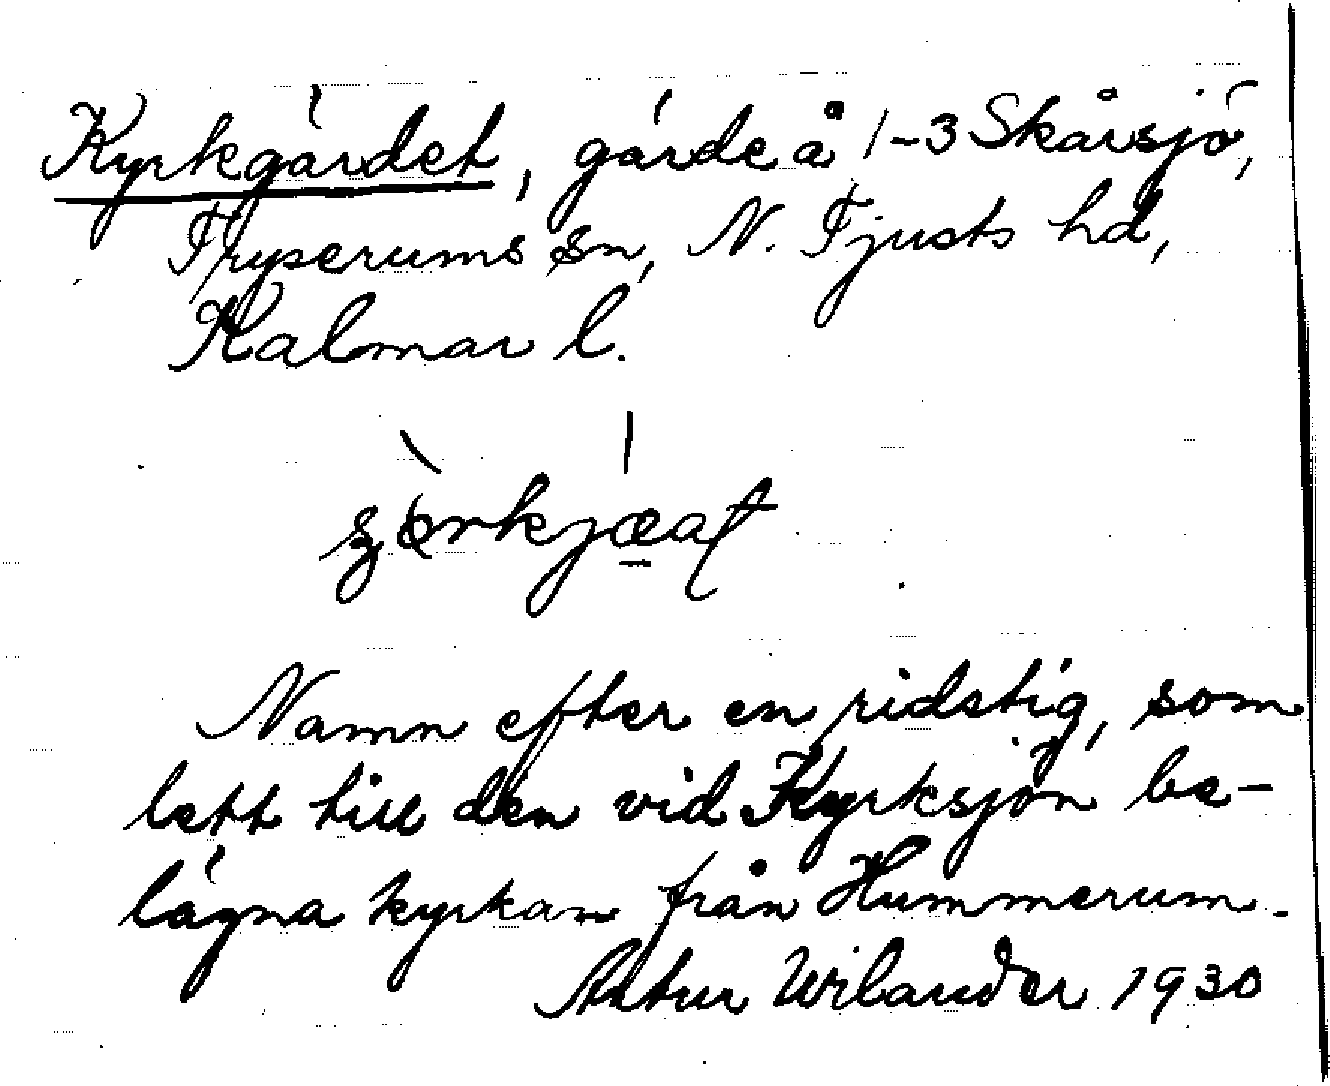 Kyrkgärdet, gärde å 1-3 Skårsjö,
Tryserums sn, N. Tjusts hd,
Kalmar l.
Namn efter en ridstig, som
lett till den vid Kyrksjön be-
lägna kyrkan från Hummerum.
Artur Wilander 1930